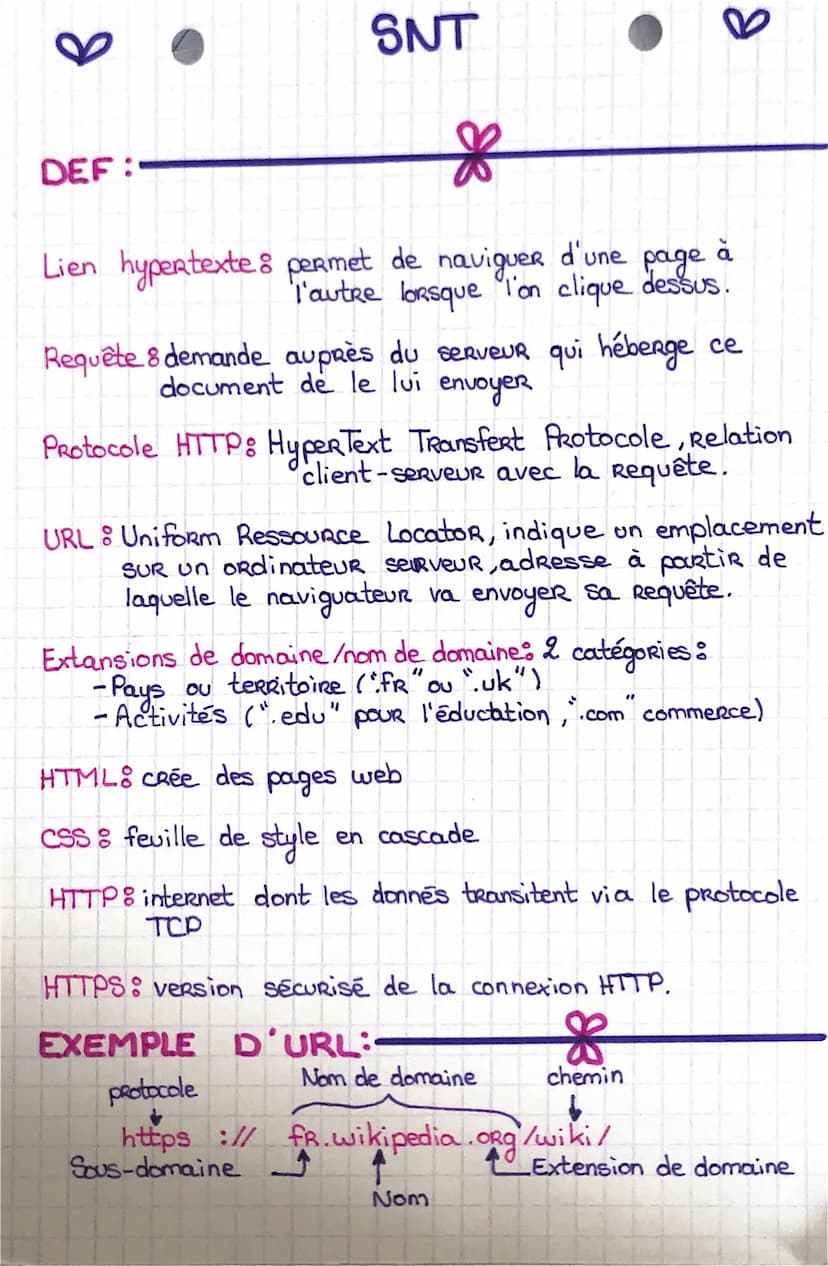 SNT
DEF :
Lien hypertexte : permet de naviguer d'une page à
l'autre lorsque l'on clique dessus.
Requête : demande auprès du serveur qui héberge ce
document de le lui envoyer
Protocole HTTP : HyperText Transfert Protocole, relation
client-serveur avec la requête.
URL : Uniform Ressource Locator, indique un emplacement
sur un ordinateur serveur, adresse à partir de
laquelle le naviguateur va envoyer sa requête.
Extansions de domaine/nom de domaine : 2 catégories :
- Pays ou territoire (".fr" ou ".uk")
- Activités (".edu" pour l'éducation, ".com" commerce)
HTML : crée des pages web
CSS : feuille de style en cascade
HTTP : internet dont les donnés transitent via le protocole
TCP
HTTPS : version sécurisé de la connexion HTTP.
EXEMPLE D'URL :
protocole Nom de domaine chemin
https :// fr.wikipedia.org/wiki/
Sous-domaine Extension de domaine
Nom